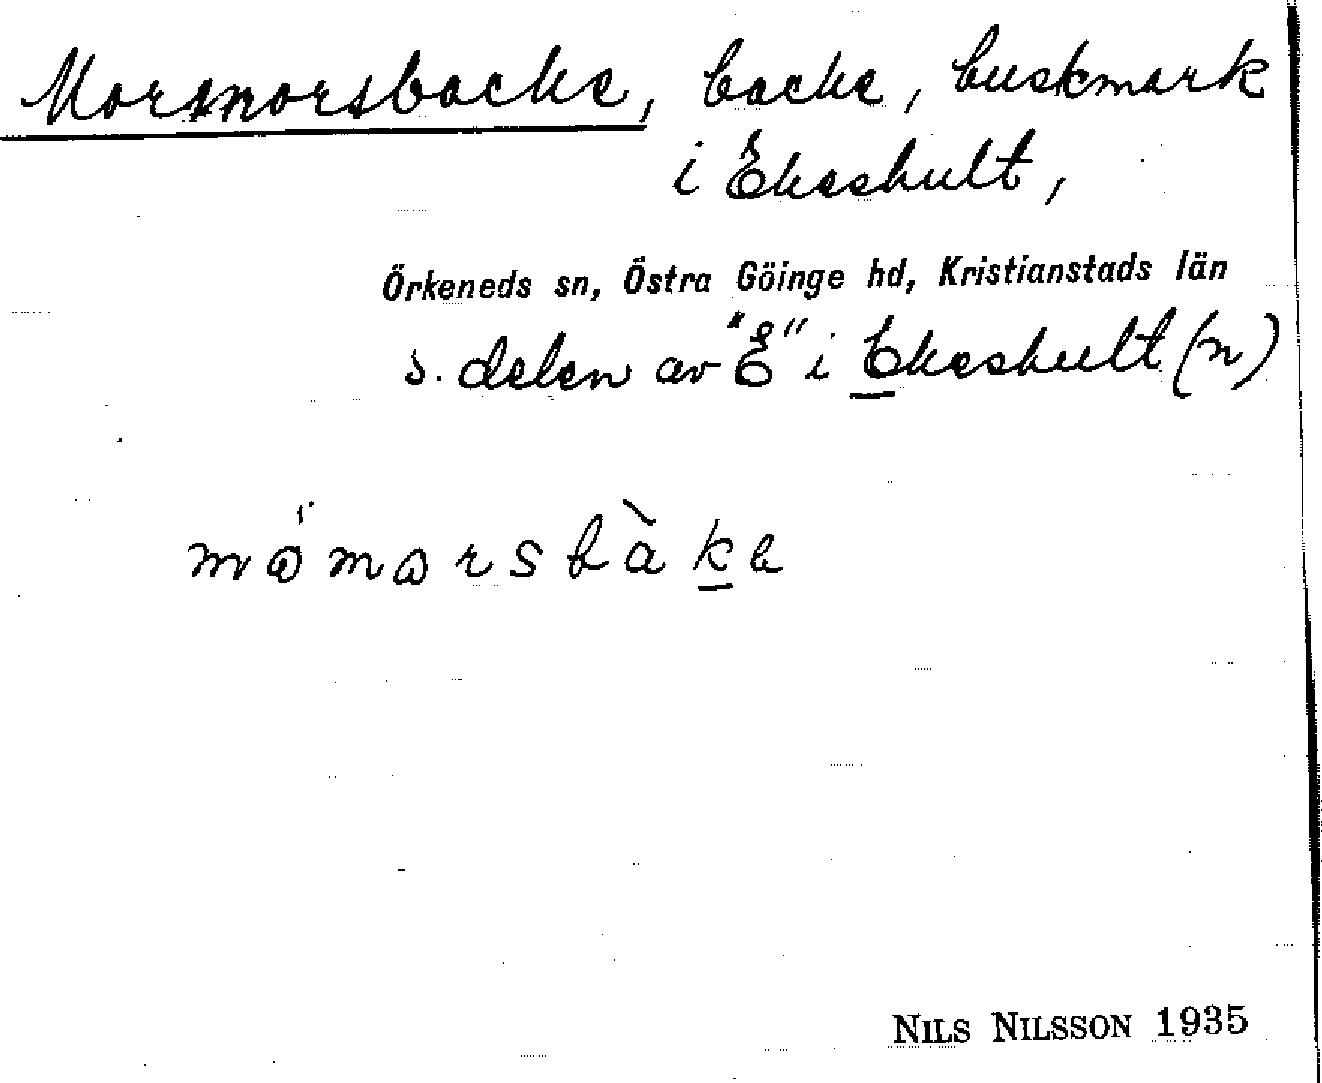 Mormorsbacke, backe, buskmark
i Ekeshult,
Örkeneds sn, Östra Göinge hd, Kristianstads län
s. delen av "E̊" i Ekeshult (n)
mɷ́mɷrsbàka
NILS NILSSON 1935